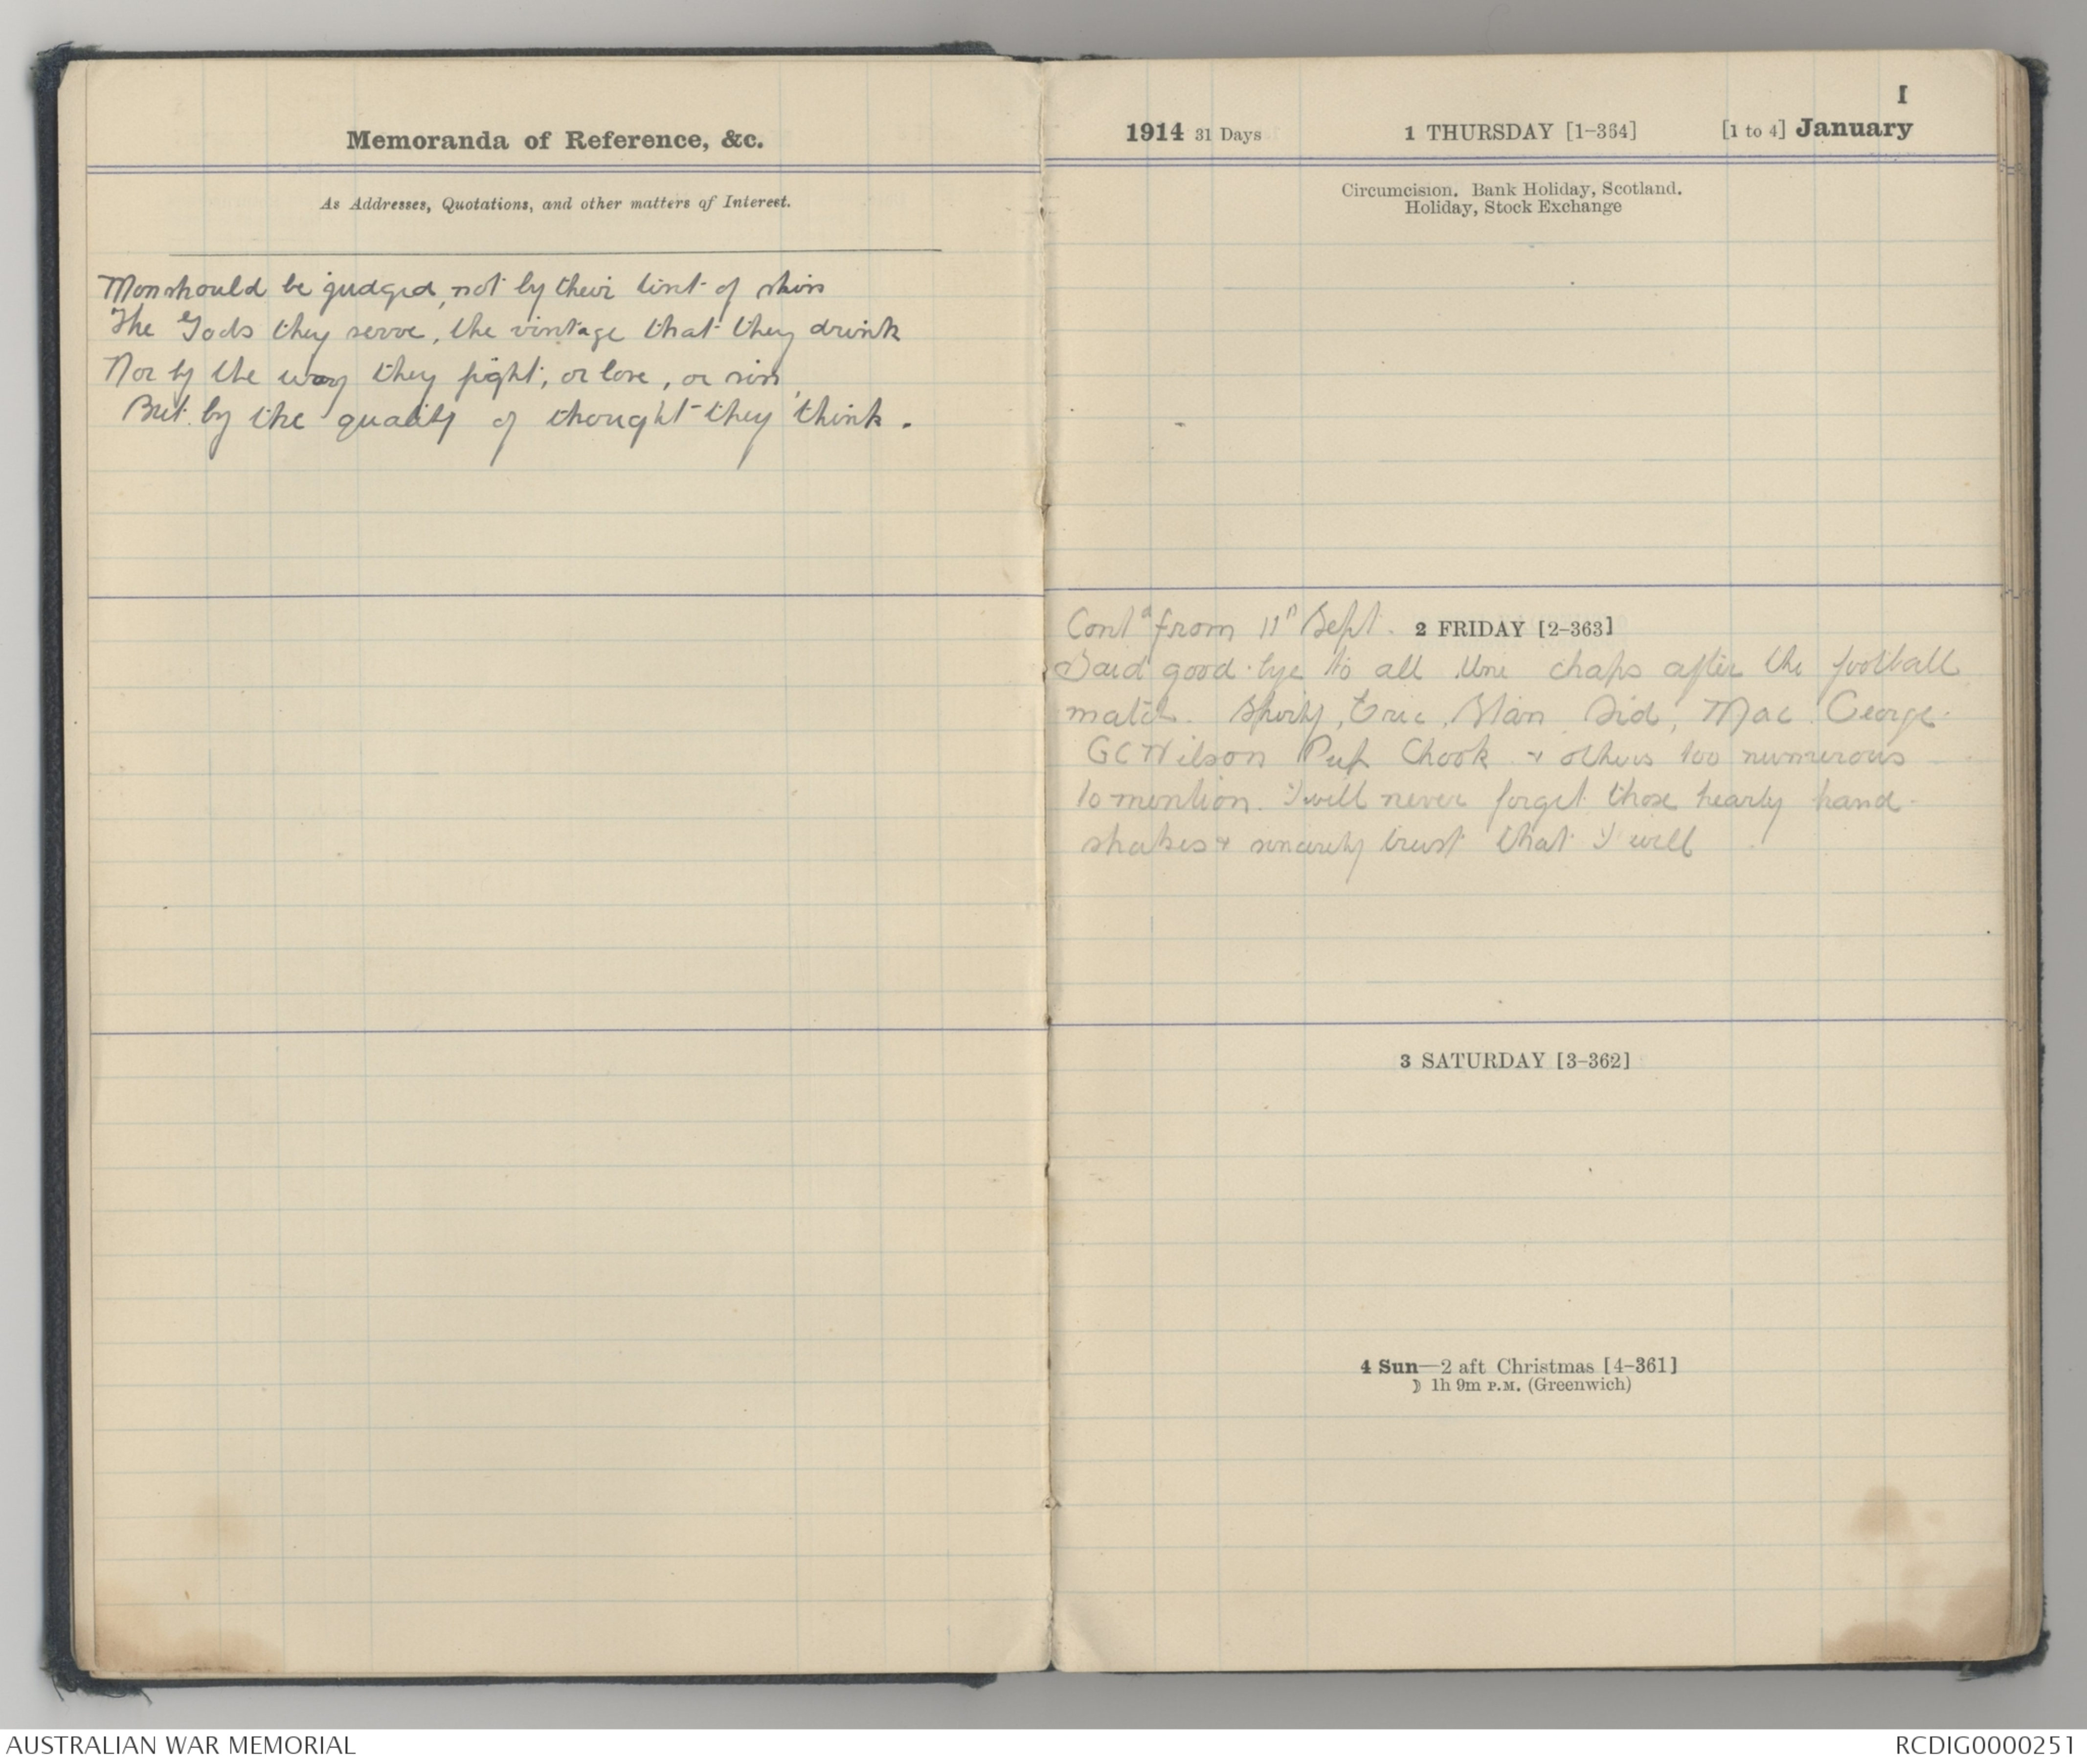 Memoranda of Reference, &c.
As Addresses, Quotations, and other matters of Interest.
Men should be judged, not by their tint of skin
The Gods they serve, the vintage that they drink
Nor by the way they fight, or love, or sin,
But by the quality of thought they think.
I
1914 31 Days 1 THURSDAY [1-364] [1 to 4] January
Circumcision. Bank Holiday, Scotland.
Holiday, Stock Exchange
Contd from 11th Sept. 2 FRIDAY [2-363]
Said good-bye to all the chaps after the football
match. Shorty, Eric, Stan Sid, Mac. George
GC Wilson Chook & others too numerous
to mention. I will never forget those hearty hand
shakes & sincerely trust that I will
3 SATURDAY [3-362]
4 Sun—2 aft Christmas [4-361]
☽ 1h 9m P.M. (Greenwich)
AUSTRALIAN WAR MEMORIAL
RCDIG0000251